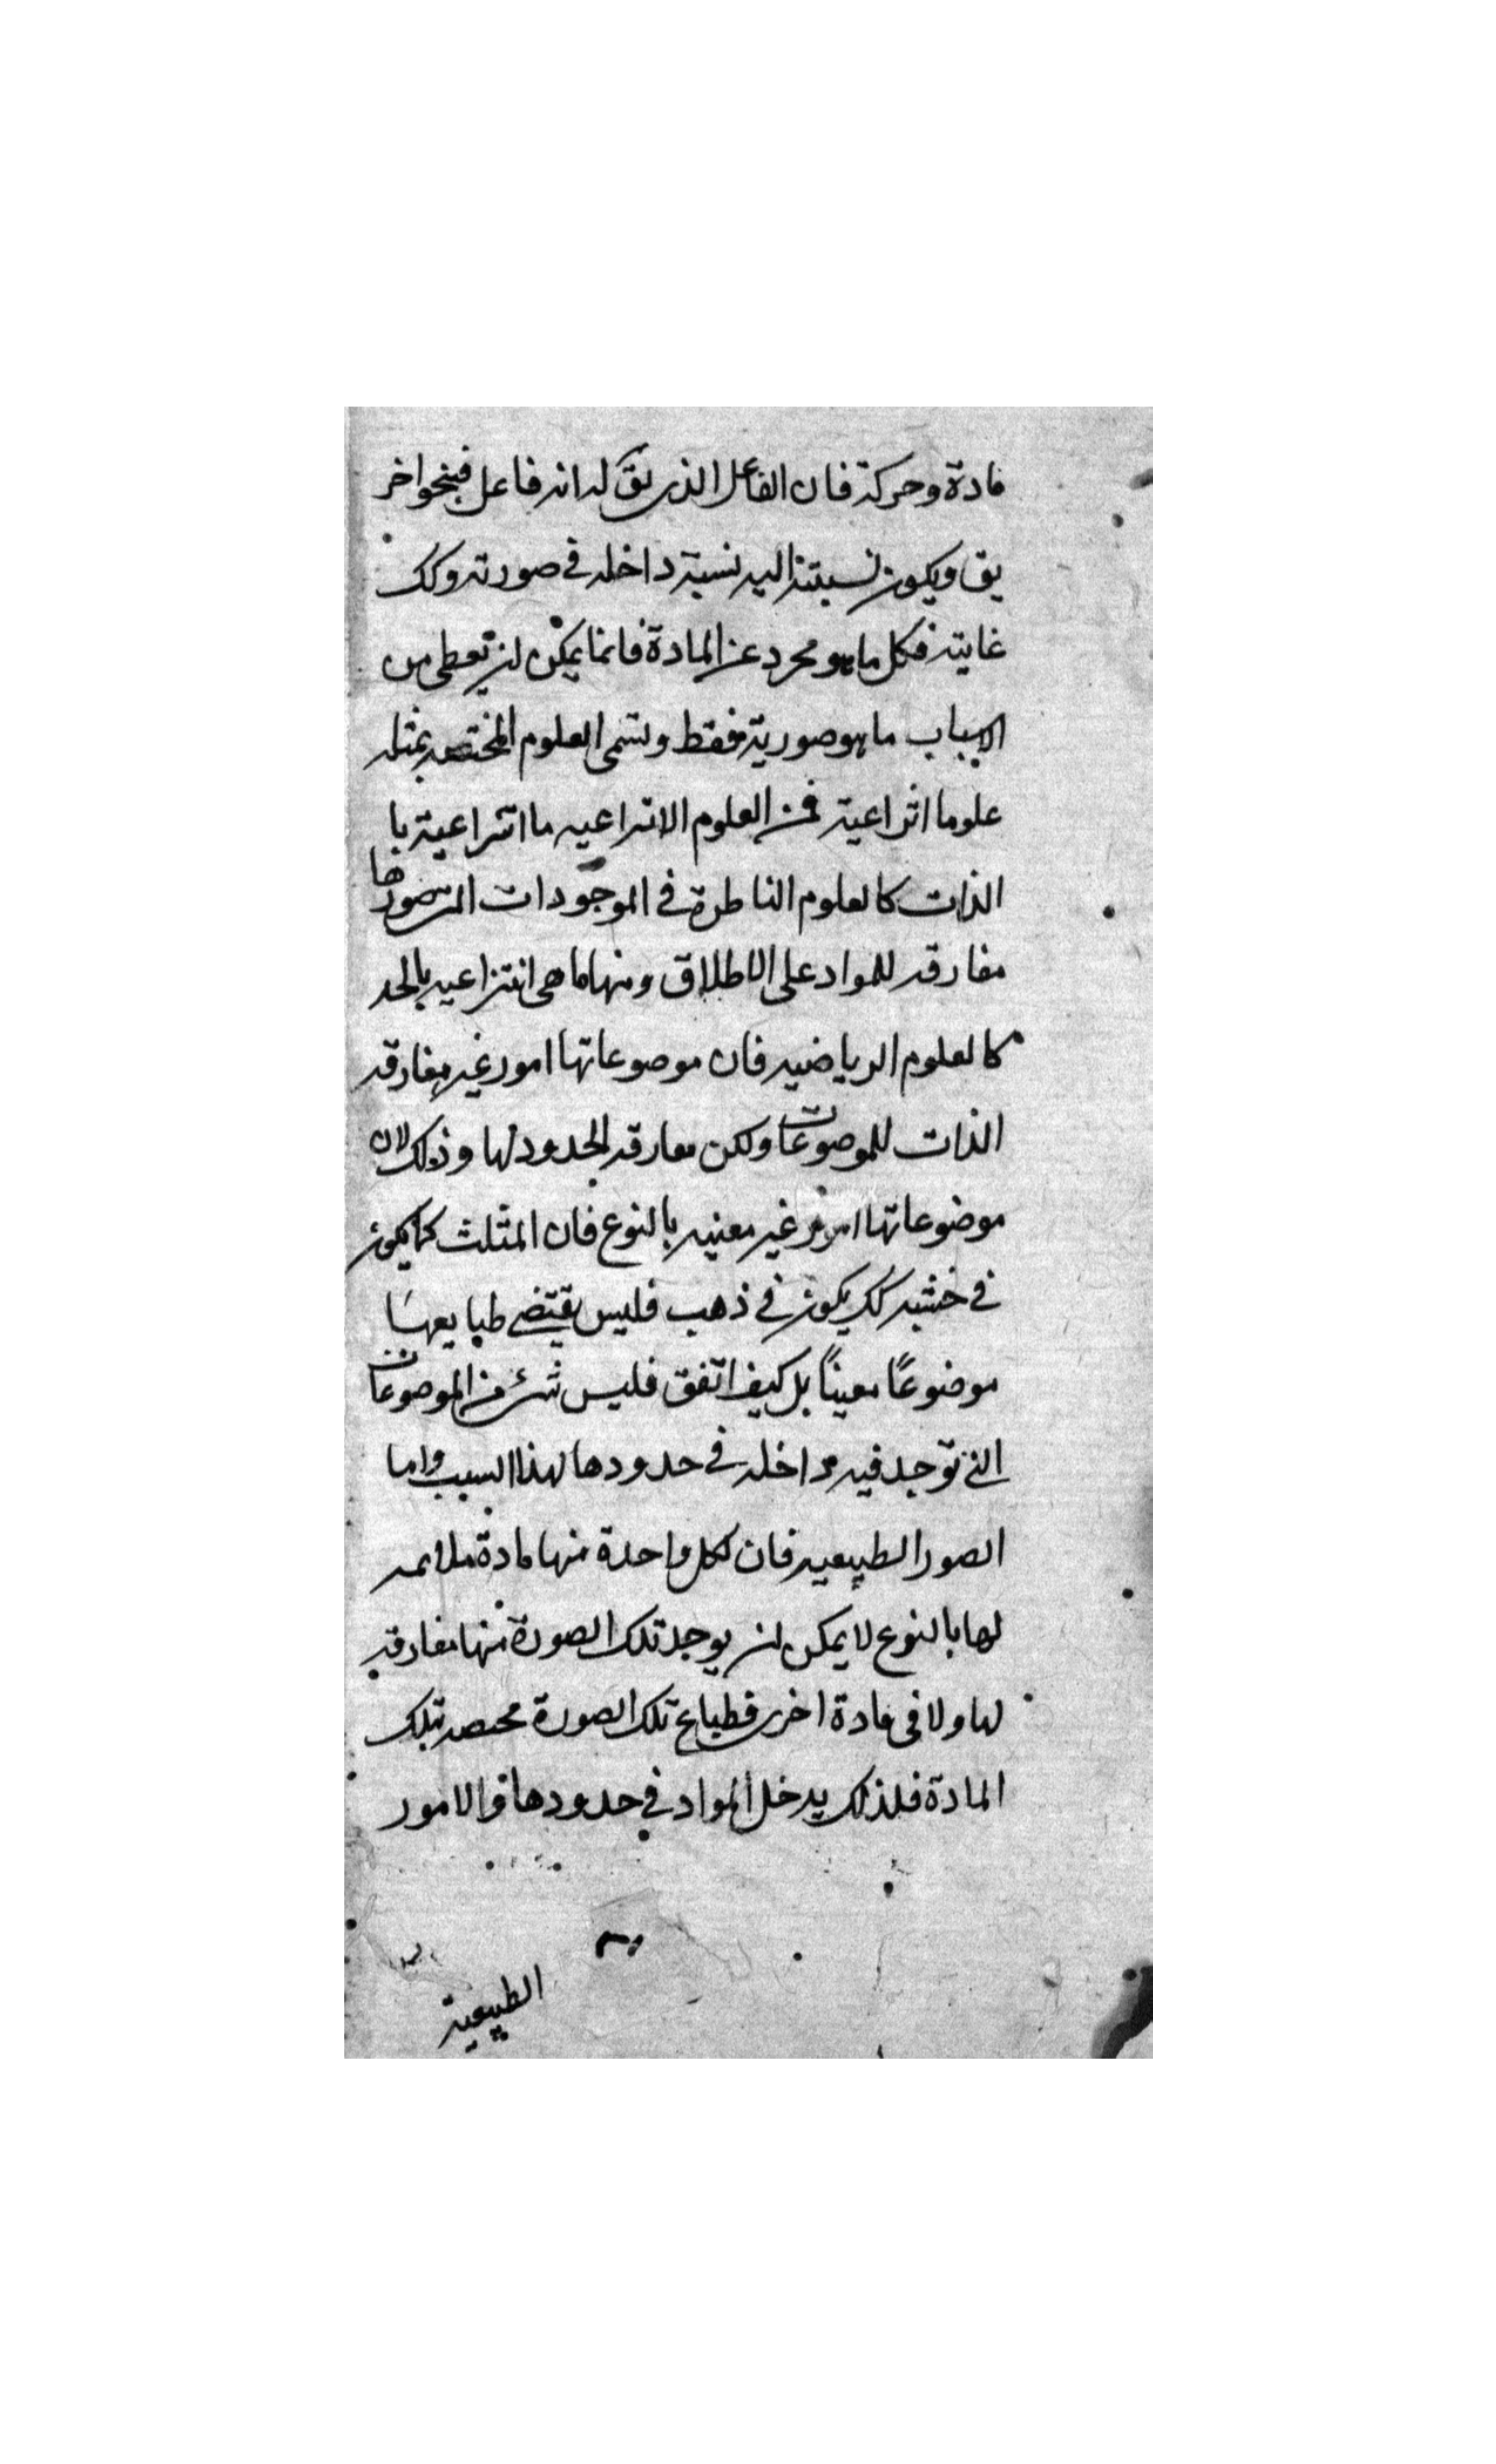 مادة وحركة فان الفاعل الذى يق له انه فاعل فبنحو اخر
يق ويكون نسبته اليه نسبة داخله فى صورته وكك
غايته فكل ما هو مجرد عن المادة فانما يمكن ان تعطى من
الاسباب ما هو صورية فقط وتسمى العلوم المختصه بمثله
علوما انراعية فمن العلوم الانتراعيه ما انتراعية با
الذات كالعلوم الناطرة فى الموجودات المتصورها
مفارقه للمواد على الاطلاق ومنها ما هى انتزاعيه بالحد
كالعلوم الرياضيه فان موصوعاتها امور غير مفارقه
الذات للموصوعات ولكن مفارقه الحدود لها وذلك لان
موضوعاتها امور غير معنيه بالنوع فان المثلث كما يكون
فى خشبه كك يكون فى ذهب فليس يقتضى طبايعها
موضوعًا معينًا بل كيف اتفق فليس شئ من الموصوعات
التى توجد فيه داخله فى حدودها لهذا السبب واما
الصور الطبيعيه فان لكل واحدة منها مادة ملائمه
لها بالنوع لا يمكن ان يوجد تلك الصورة منها مفارقه
لها ولا فى مادة اخرى فطباع تلك الصورة مختصه بتلك
المادة فلذلك يدخل المواد فى حدودها والامور
الطبيعية